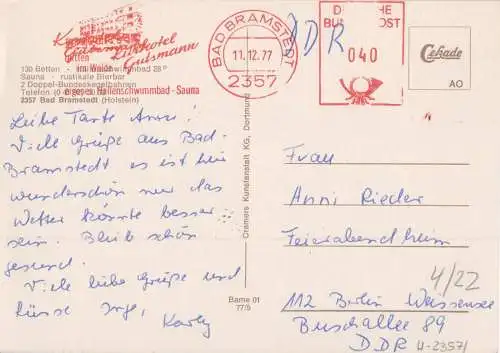 Kurhotel Gutsmann
Lukhotel
Gutsmann
im Walde
130 Betten
Hallenschwimmbad 28°
Sauna - rustikale Bierbar
2 Doppel-Bundeskegelbahnen
Telefon
eigenes Hallenschwimmbad - Sauna
2357 Bad Bramstedt (Holstein)
BAD BRAMSTEDT
11.12.77
2357
DEUTSCHE
BUNDESPOST
040
DDR
Cekade
AO
Liebe Tante Anni!
Viele Grüße aus Bad-
Bramstedt es ist hier
wunderschön nur das
Wetter könnte besser
sein. Bleib schön
gesund.
Viele liebe Grüße und
Küsse
Karly
Bame 01
77/5
Cramers Kunstanstalt KG, Dortmund
Frau
Anni Rieder
Feierabendheim
4/22
112 Berlin Weissensee
Buschallee 89
DDR
H-2357/